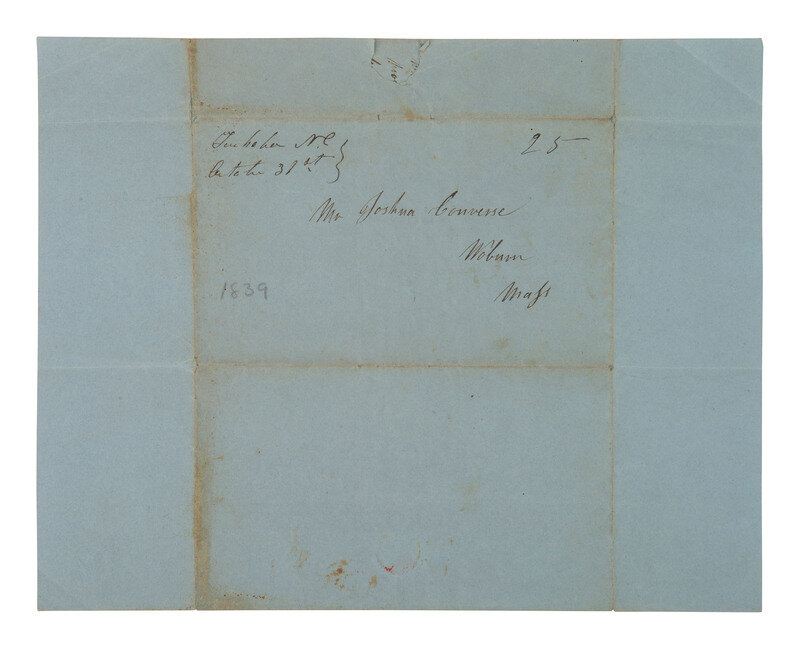 Tuckahoe N.C
October 31st
25
Mr Joshua Converse
Woburn
Mass
1839